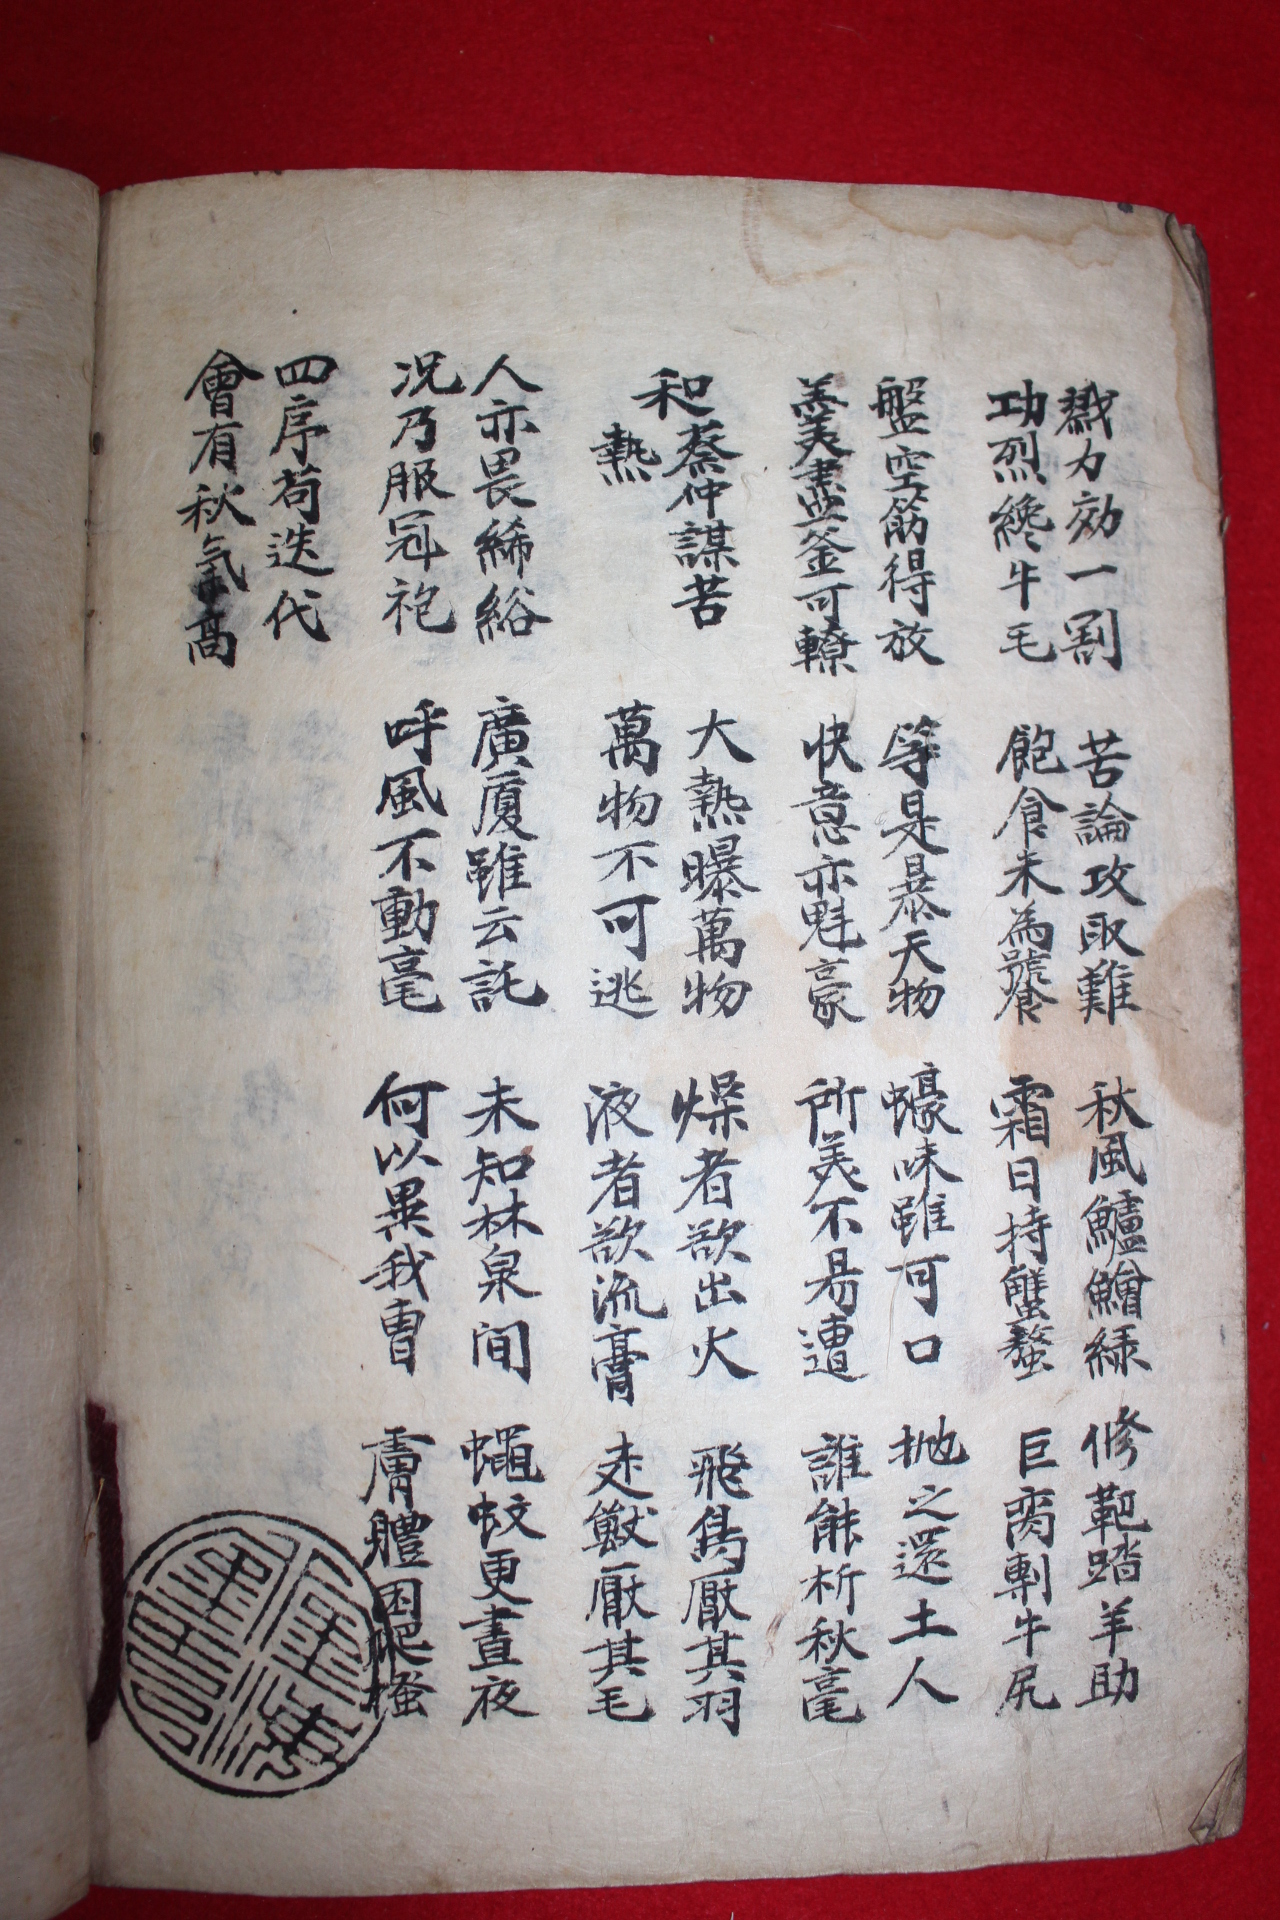 戮力効一割
功烈纔牛毛
苦論攻取難
飽食未為饕
秋風鱸鱠綠
霜日持蟹螯
修靶踏羊助
巨脔剸牛尻
盤空筯得放
羹盡釜可轑
等是暴天物
快意亦魁豪
蠔味雖可口
所美不易遭
抛之還土人
誰能析秋毫
和蔡仲謀苦
熱
大熱曝萬物
萬物不可逃
燥者欲出火
液者欲流膏
飛鳥厭其羽
走獸厭其毛
人亦畏絺綌
况乃服冠袍
廣厦雖云託
呼風不動毫
未知林泉間
何以異我曹
蠅蚊更晝夜
膚體困爬搔
四序苟迭代
會有秋氣高